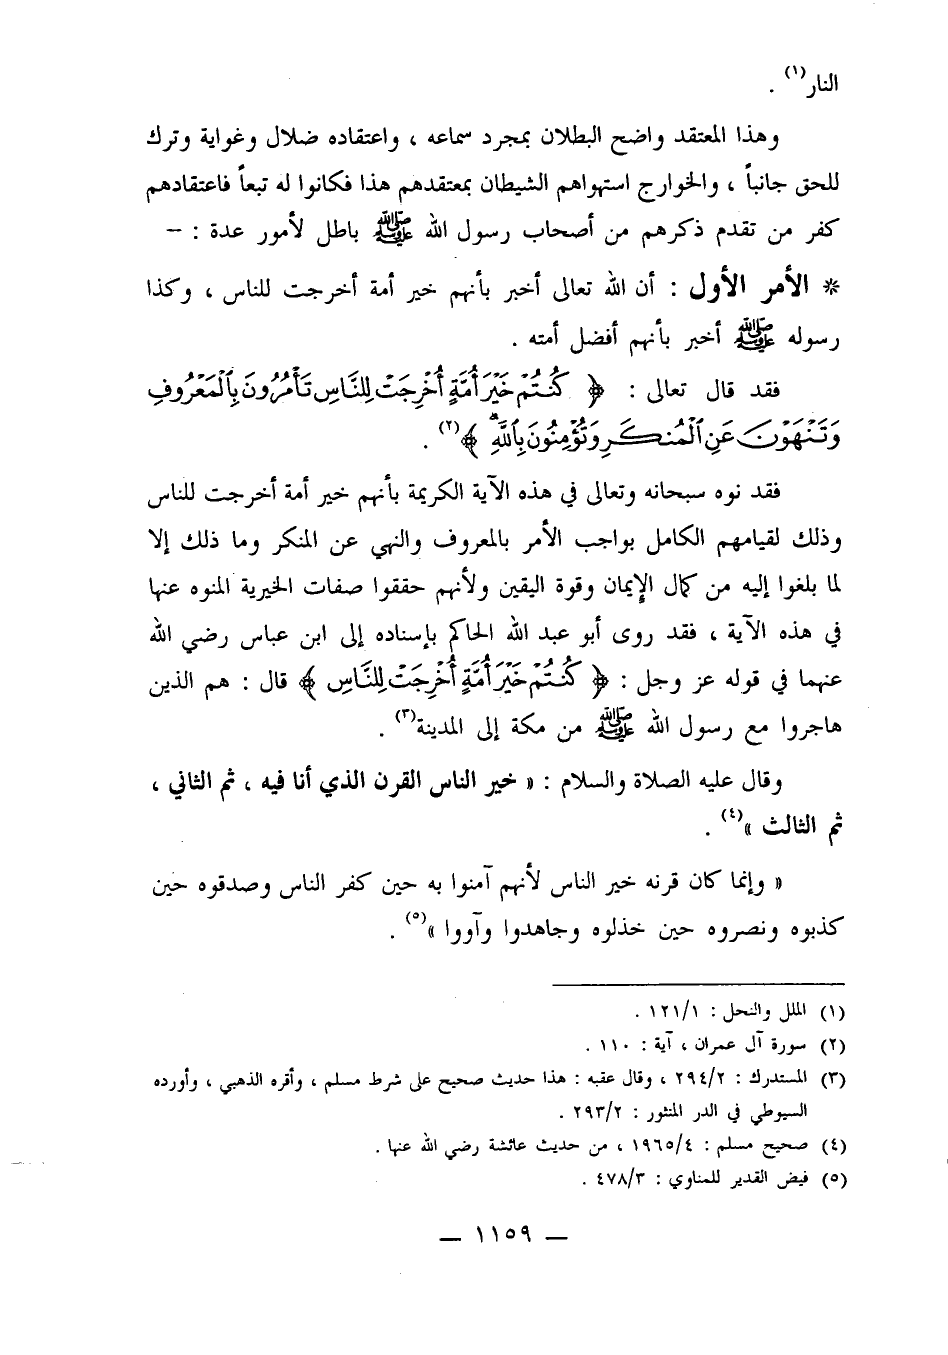 النار(١) .
وهذا المعتقد واضح البطلان بمجرد سماعه ، واعتقاده ضلال وغواية وترك
للحق جانباً ، والخوارج استهواهم الشيطان بمعتقدهم هذا فكانوا له تبعاً فاعتقادهم
كفر من تقدم ذكرهم من أصحاب رسول الله ﷺ باطل لأمور عدة : –
* الأمر الأول : أن الله تعالى أخبر بأنهم خير أمة أخرجت للناس ، وكذا
رسوله ﷺ أخبر بأنهم أفضل أمته .
فقد قال تعالى : ﴿ كُنتُمْ خَيْرَ أُمَّةٍ أُخْرِجَتْ لِلنَّاسِ تَأْمُرُونَ بِالْمَعْرُوفِ
وَتَنْهَوْنَ عَنِ الْمُنكَرِ وَتُؤْمِنُونَ بِاللَّهِ ﴾(٢) .
فقد نوه سبحانه وتعالى في هذه الآية الكريمة بأنهم خير أمة أخرجت للناس
وذلك لقيامهم الكامل بواجب الأمر بالمعروف والنهي عن المنكر وما ذلك إلا
لما بلغوا إليه من كمال الإيمان وقوة اليقين ولأنهم حققوا صفات الخيرية المنوه عنها
في هذه الآية ، فقد روى أبو عبد الله الحاكم بإسناده إلى ابن عباس رضي الله
عنهما في قوله عز وجل : ﴿ كُنتُمْ خَيْرَ أُمَّةٍ أُخْرِجَتْ لِلنَّاسِ ﴾ قال : هم الذين
هاجروا مع رسول الله ﷺ من مكة إلى المدينة(٣) .
وقال عليه الصلاة والسلام : « خير الناس القرن الذي أنا فيه ، ثم الثاني ،
ثم الثالث »(٤) .
« وإنما كان قرنه خير الناس لأنهم آمنوا به حين كفر الناس وصدقوه حين
كذبوه ونصروه حين خذلوه وجاهدوا وآووا »(٥) .
(١) الملل والنحل : ١٢١/١ .
(٢) سورة آل عمران ، آية : ١١٠ .
(٣) المستدرك : ٢٩٤/٢ ، وقال عقبه : هذا حديث صحيح على شرط مسلم ، وأقره الذهبي ، وأورده
السيوطي في الدر المنثور : ٢٩٣/٢ .
(٤) صحيح مسلم : ١٩٦٥/٤ ، من حديث عائشة رضي الله عنها .
(٥) فيض القدير للمناوي : ٤٧٨/٣ .
— ١١٥٩ —